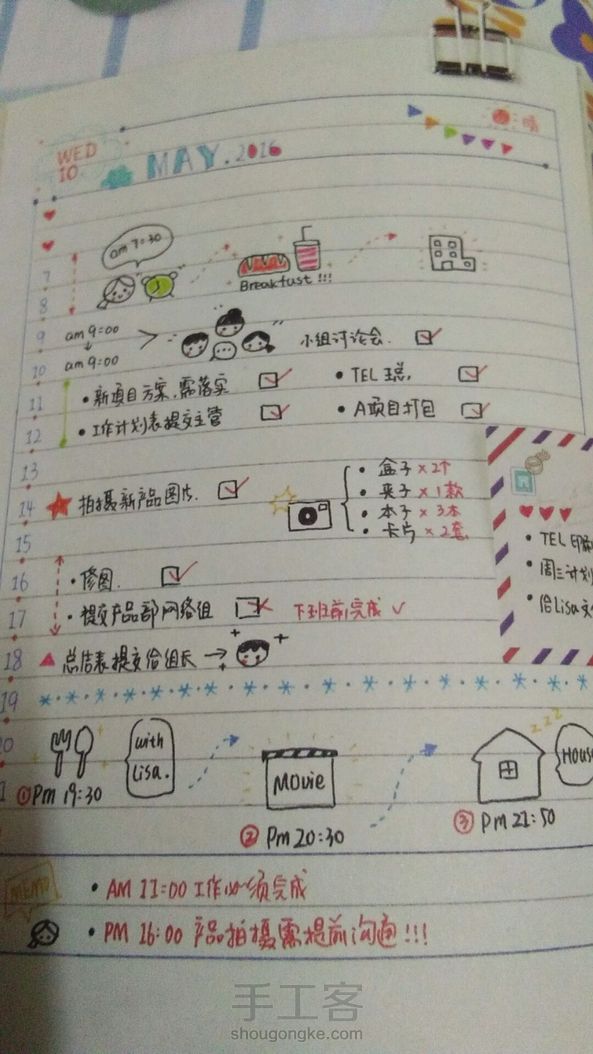 WED
10
MAY.2016
:晴
am 7:30
Breakfast !!!
7
8
9
am 9:00
小组讨论会.
10
am 9:00
11
•新项目方案.需落实
•TEL
12
•工作计划表提交主管
•A项目打包
13
•盒子×2个
14
拍摄新产品图片.
•夹子×1款
•本子×3本
•卡片×2套
15
•TEL
16
•修图.
•周三计划
17
•提交产品部网络组
下班前完成
•给Lisa文
18
总结表提交给组长
19
20
with
Lisa.
MOVIE
zzz
House
①Pm 19:30
②Pm 20:30
③Pm 21:50
MEMO
•AM 11:00 工作必须完成
•PM 16:00 产品拍摄需提前沟通!!!
手工客
shougongke.com